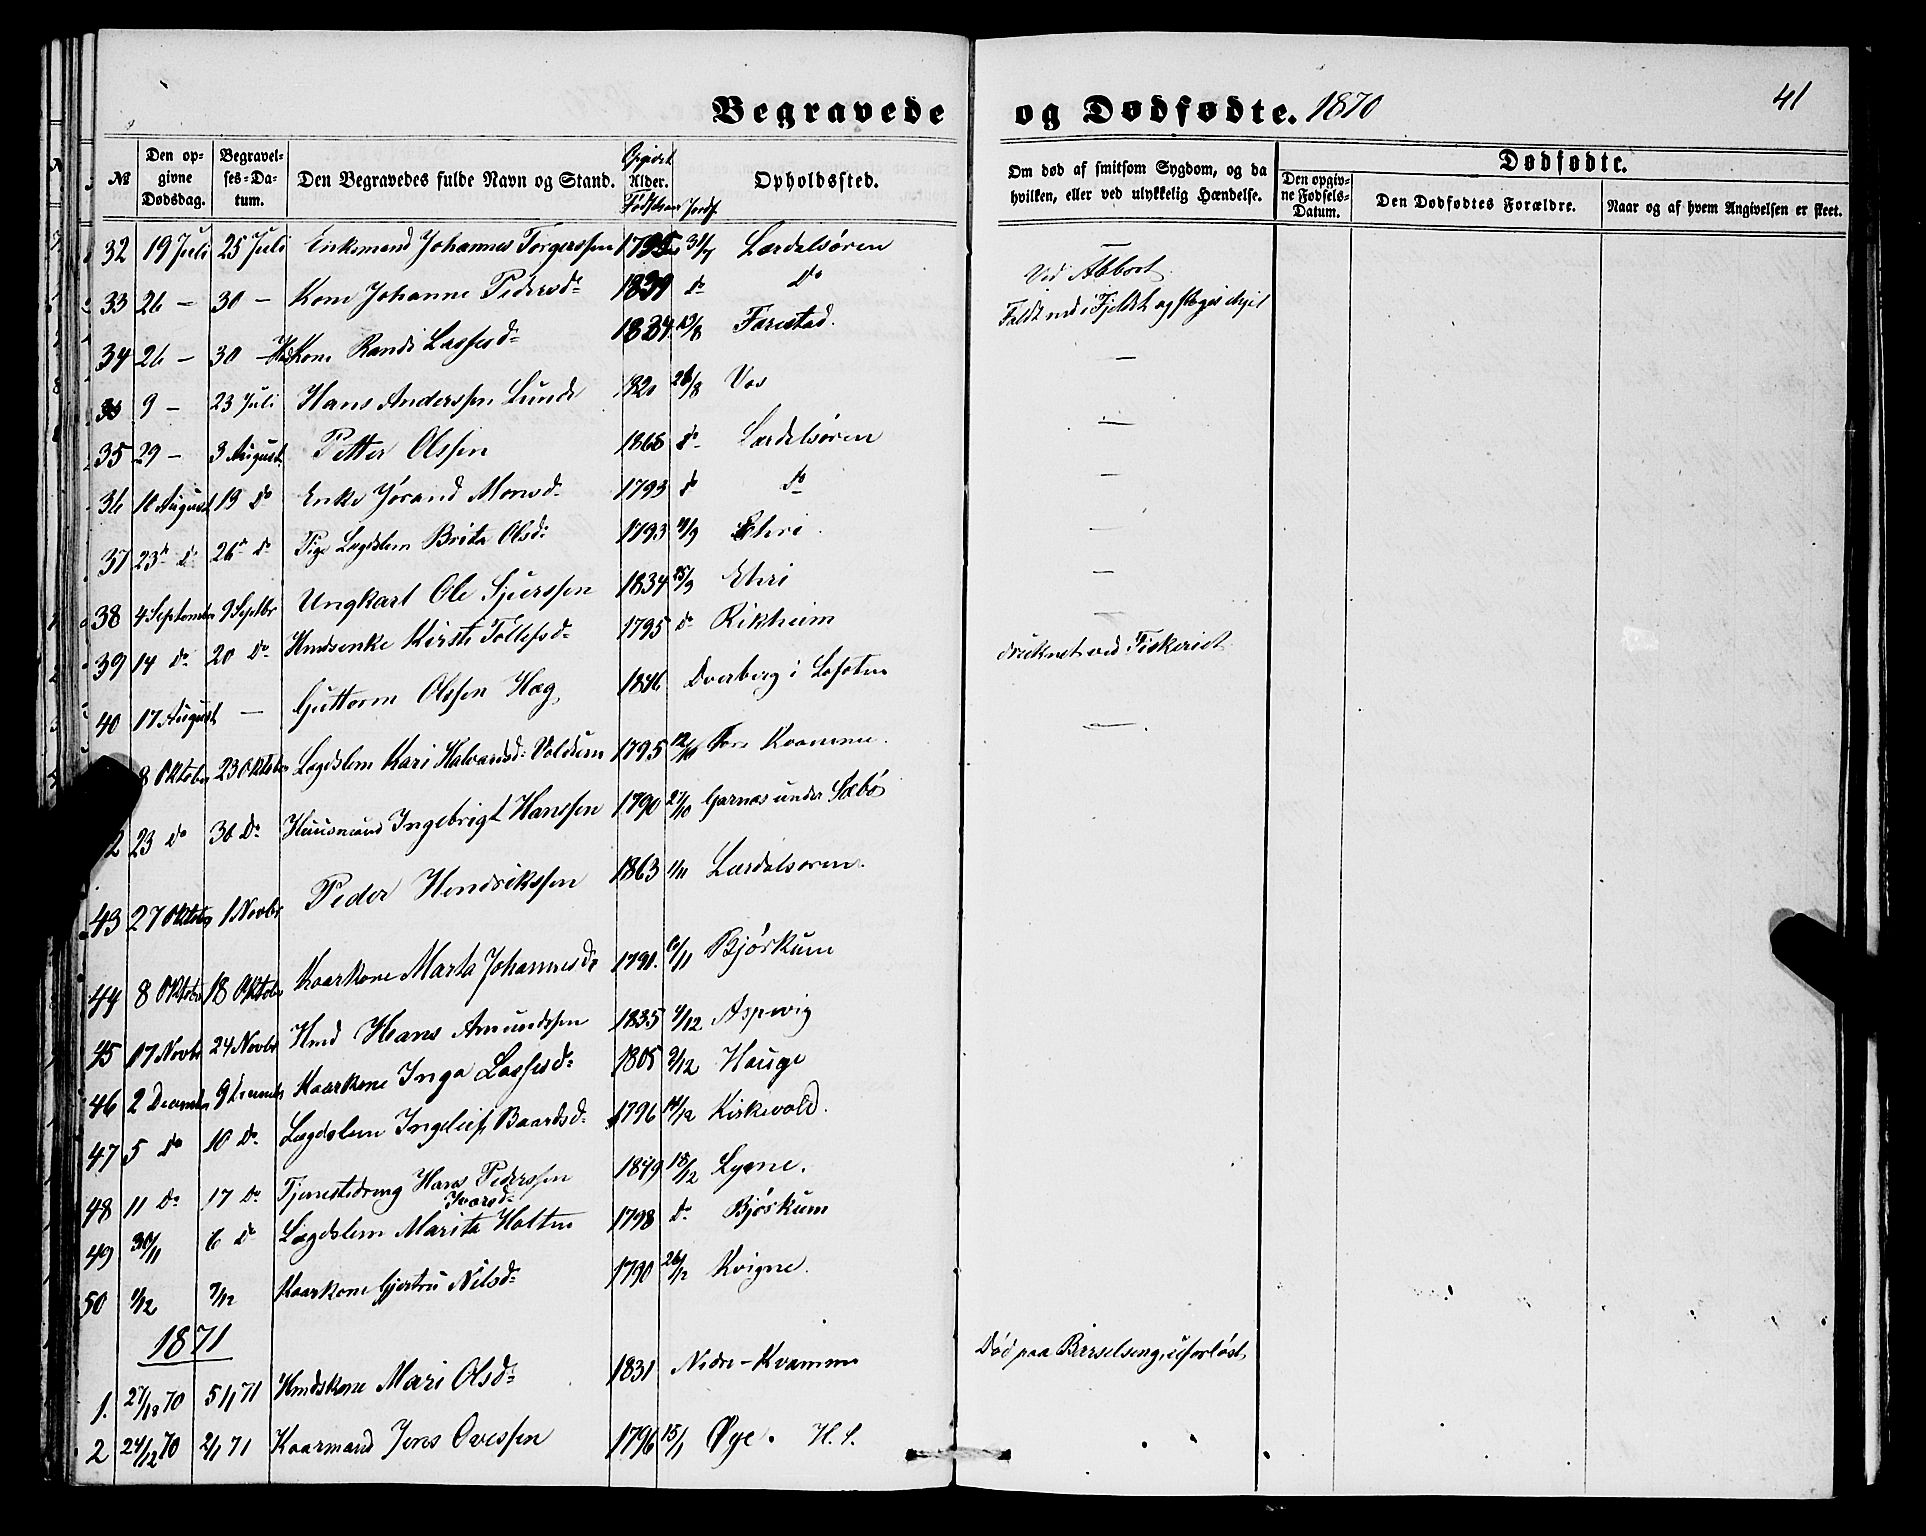 Begravede og Dødfødte. 1870 41
№ Den opgivne Dødsdag. Begravelses-Datum. Den Begravedes fulde Navn og Stand. Opgivet Alder. Fødselsaar Jordf. Opholdssted. Om død af smitsom Sygdom, og da hvilken, eller ved ulykkelig Hændelse. Dødfødte. Den opgivne Fødsels-Datum. Den Dødfødtes Forældre. Naar og af hvem Angivelsen er skeet.
32 19 Juli 25 Juli Enkemand Johannes Torgerssen 1795 31/7 Lærdalsøren —
33 26 — 30 — Kone Johanne Pedersd: 1839 do do Ved Abbort
34 26 — 30 — Kone Randi Lassesd: 1834 Farestad. Faldt ned i Fjeldet og
9 — 23 Juli Hans Anderssen Lunde 1820 28/8 Vos —
35 29 — 3 August Petter Olssen 1868 do Lærdalsøren —
36 10 August 19 do Enke Jørand Monsd: 1793 do do —
37 23de do 26de do Pige Lægdslem Brita Olsd: 1793 4/9 Eheri. —
38 4 September 9 Septbr Ungkarl Ole Sjurssen 1834 25/9 Eheri —
39 14 do 20 do Hmdsenke Kirsti Tollefsd: 1795 do Rikheim —
40 17 August — Guttorm Olssen Hæg 1846 Dverberg i Lofoten druknet ved Fiskeriet
8 Oktober 23 Oktober Lægdslem Kari Halvarsd: Voldum 1795 Kvamme. —
2 23 do 30 do Huusmand Ingebrigt Hanssen 1790 27/10 Garnaes under Sæbø
43 27 Oktobr 1 Novbr Peder Henrikssen 1863 1/11 Lærdalsøren.
44 8 Oktobr 18 Oktobr Kaarkone Marta Johannesd: 1791. 6/11 Bjørkum
45 17 Novbr 24 Novbr Hmd Hans Amundssen 1835 4/12 Aspevig
46 2 Decembr 9 Decembr Kaarkone Inga Lassesd: 1805 9/12 Hauge
47 5 do 10 do Lægdslem Ingelief Baardsd: 1796 Kirkevold.
48 11 do 17 do Tjenestedreng Hans Pederssen 1849 18/12 Lysne.
49 30/11 6 do Lægdslem Marita Ivarsd: Holten 1798 do Bjørkum
50 1/12 7/12 Kaarkone Gjertru Nilsd: 1790 26/12 Kvigne.
1871
1. 27/12 70 5/1 71 Hmdskone Mari Olsd: 1831 Nedre-Kvamme Død paa Barselseng, uforløst
2 24/12 70 2/1 71 Kaarmand Jens Ovessen 1796 15/1 Øye. H. S.